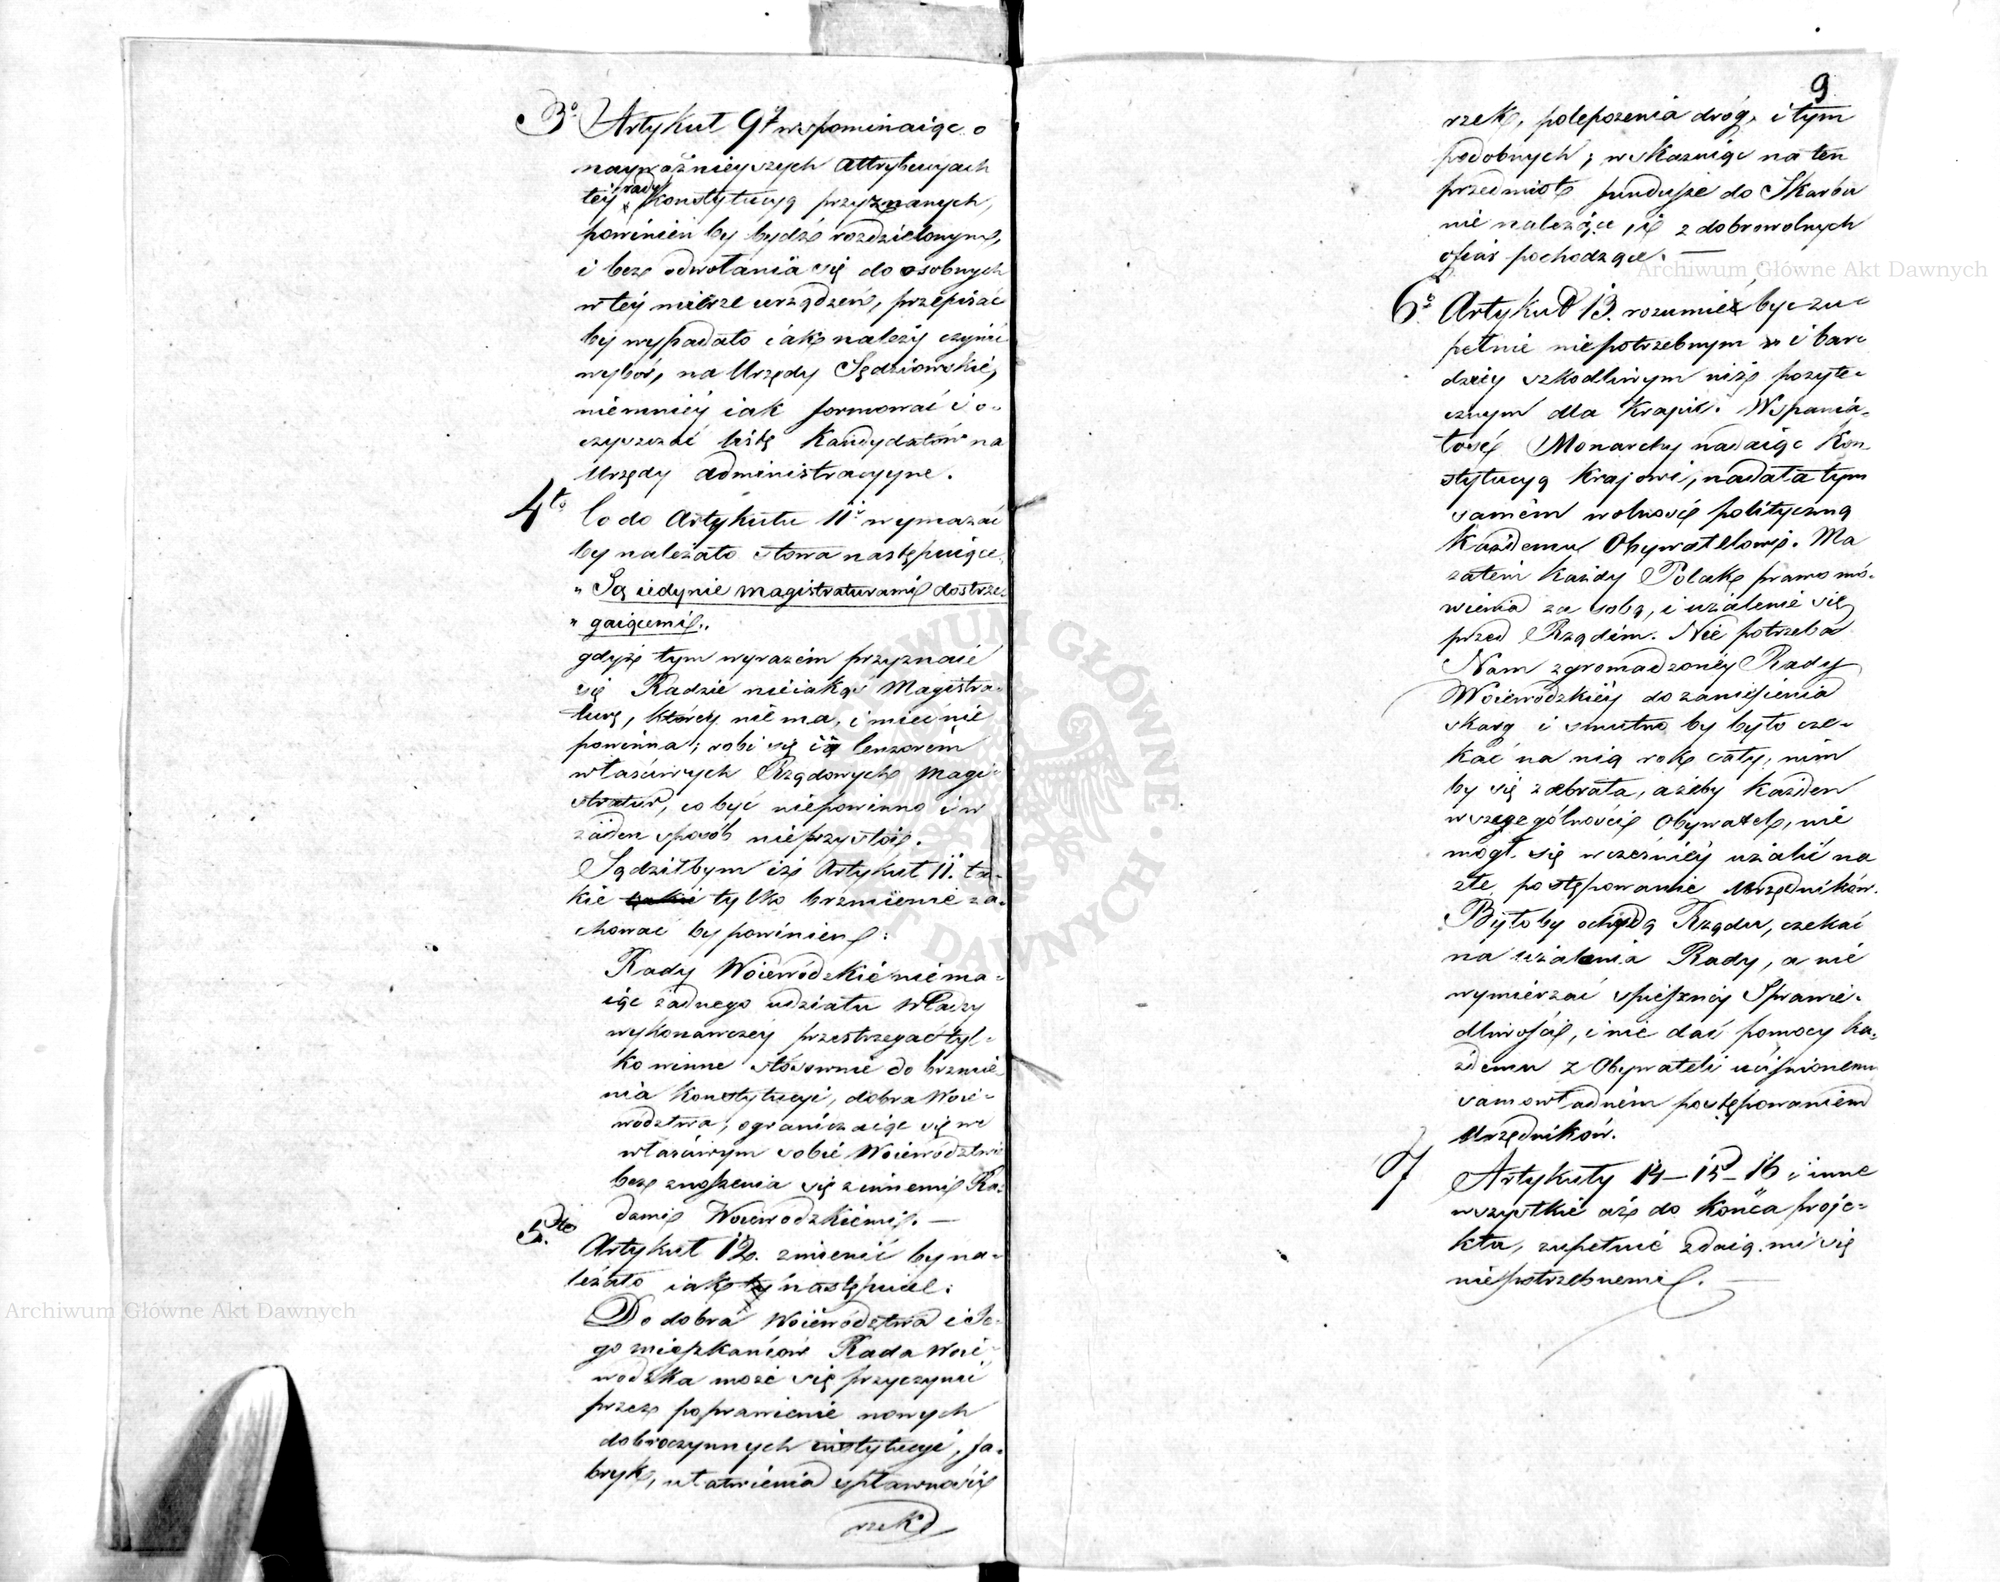 3o Artykuł 9ty wspominaiąc o
nayważnieyszych attrybucyach
teỹ rady Konstytucyą przyznanych,
powinien by bydź rozdzielonym,
i bez odwołania się do osobnych
w teỹ mierze urządzeń, przepisać
by wypadało iak należy czynić
wybór, na Urzędy Sędziowskie,
niemnieỹ iak formować i o-
czyszczać listę Kandydatów na
Urzędy administracyyne.
4to Co do Artykułu 11o wymazać
by należało słowa następuiące,
" Są iedynie magistraturami dostrze-
" gaiącemi.
gdyż tym wyrazem przyznaie
się Radzie nieiaką Magistra-
turę, którey nie ma, i mieć nie
powinna; robi się ią Cenzorem
właściwych Rządowych Magi-
stratur, co być niepowinno i w
żaden sposób nieprzystoi.
Sądziłbym iż Artykuł 11. ta-
kie tylko brzmienie za-
chować by powinien:
Rady Woiewódzkie nie ma-
iąc żadnego udziału Władzy
wykonawczey przestrzegać tyl-
ko winne stosownie do brzmie-
nia Konstytucyi, dobra Woie-
wództwa; ograniczaiąc się we
właściwym sobie Woiewództwie
bez znoszenia się z innemi Ra-
dami Woiewodzkiemi. —
5to Artykuł 12. zmienić by na-
leżało iak następuie:
Do dobra Woiewództwa i Je-
go mieszkańców Rada Woie-
wodzka może się przyczynić
przez poprawienie nowych
dobroczynnych instytucyi, fa-
bryk, ułatwienia spławności
rzek
9
rzek, polepszenia dróg, i tym
podobnych; wskazuiąc na ten
przedmiot fundusze do Skarbu
nie należące, i z dobrowolnych
ofiar pochodzące. —
6o Artykuł 13. rozumiem być zu-
pełnie niepotrzebnym i bar-
dziey szkodliwym niż pożyte-
cznym dla Kraju. Wspania-
łość Monarchy nadaiąc Kon-
stytucyą Krajowi, nadała tym
samem wolność polityczną
Każdemu Obywatelowi. Ma
zatem każdy Polak prawo mó-
wienia za sobą, i użalenie się
przed Rządem. Nie potrzeba
Nam zgromadzoney Rady
Woiewodzkieỹ do zaniesienia
skarg i smutno by było cze-
kać na nią rok cały, nim
by się zebrała, ażeby każden
w szczególności Obywatel, nie
mogł się wcześnieỹ użalić na
złe postępowanie Urzędników.
Byłoby ochydą Rządu, czekać
na użalenia Rady, a nie
wymierzać spieszney Sprawie-
dliwości, i nie dać pomocy ka-
żdemu z Obywateli uciśnionemu
samowładnem postępowaniem
Urzędników.
7 Artykuły 14 – 15 – 16 i inne
wszystkie aż do końca proje-
ktu, zupełnie zdaią mi się
niepotrzebnemi. —